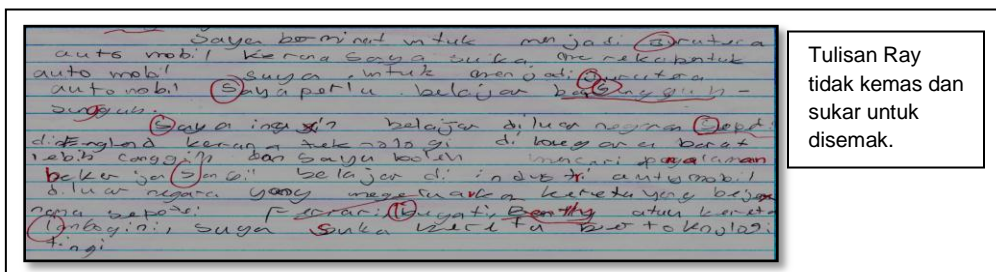 Saya berminat untuk menjadi jurutera
auto mobil kerana saya suka merekabentuk
auto mobil saya, untuk menjadi jurutera
automobil Saya perlu belajar bersungguh-
sungguh.
Saya ingin belajar diluar negara Seperti
diEngland kerana teknologi di negara barat
lebih canggih dan Saya boleh mencari pengalaman
bekerja Sambil belajar di industri automobil
diluar negara yang
nama seperti Ferrari, Bugati, Benthy atau kereta
lambogini, saya suka kereta berteknologi
tinggi
Tulisan Ray
tidak kemas dan
sukar untuk
disemak.